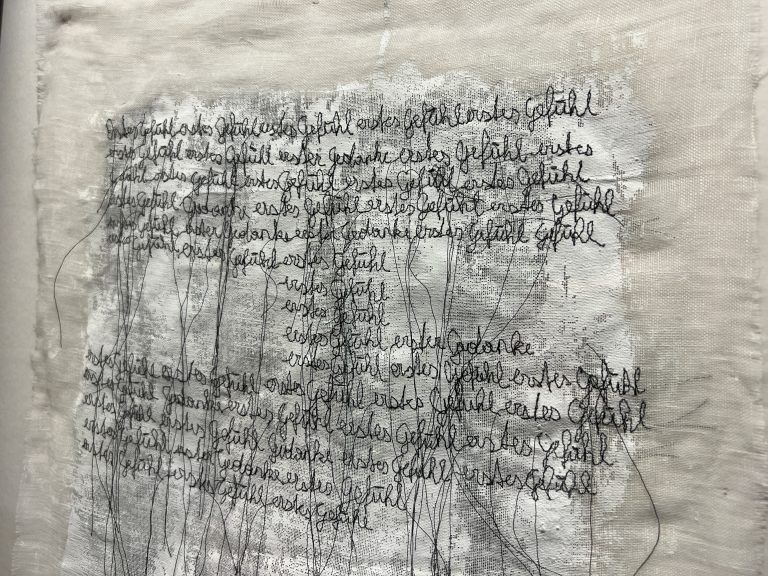 erstes Gefühl erstes Gefühl erstes Gefühl erstes Gefühl erstes Gefühl
Gefühl erstes Gefühl erster Gedanke erstes Gefühl erstes
erstes Gefühl erstes Gefühl erstes Gefühl erstes Gefühl
Gefühl Gedanke erstes Gefühl erstes Gefühl erstes Gefühl
Gefühl erster Gedanke erster Gedanke erstes Gefühl Gefühl
erstes Gefühl erstes Gefühl erstes Gefühl
erstes Gefühl
erstes Gefühl
erstes Gefühl erster Gedanke
erstes Gefühl erstes Gefühl erstes Gefühl erstes Gefühl erstes Gefühl
erstes Gefühl Gedanke erstes Gefühl erstes Gefühl erstes Gefühl
erstes Gefühl erstes Gefühl erstes Gefühl erstes Gefühl
erstes Gefühl Gedanke erstes Gefühl erstes Gefühl
erstes Gefühl Gedanke erstes Gefühl
Gefühl erstes Gefühl erstes Gefühl